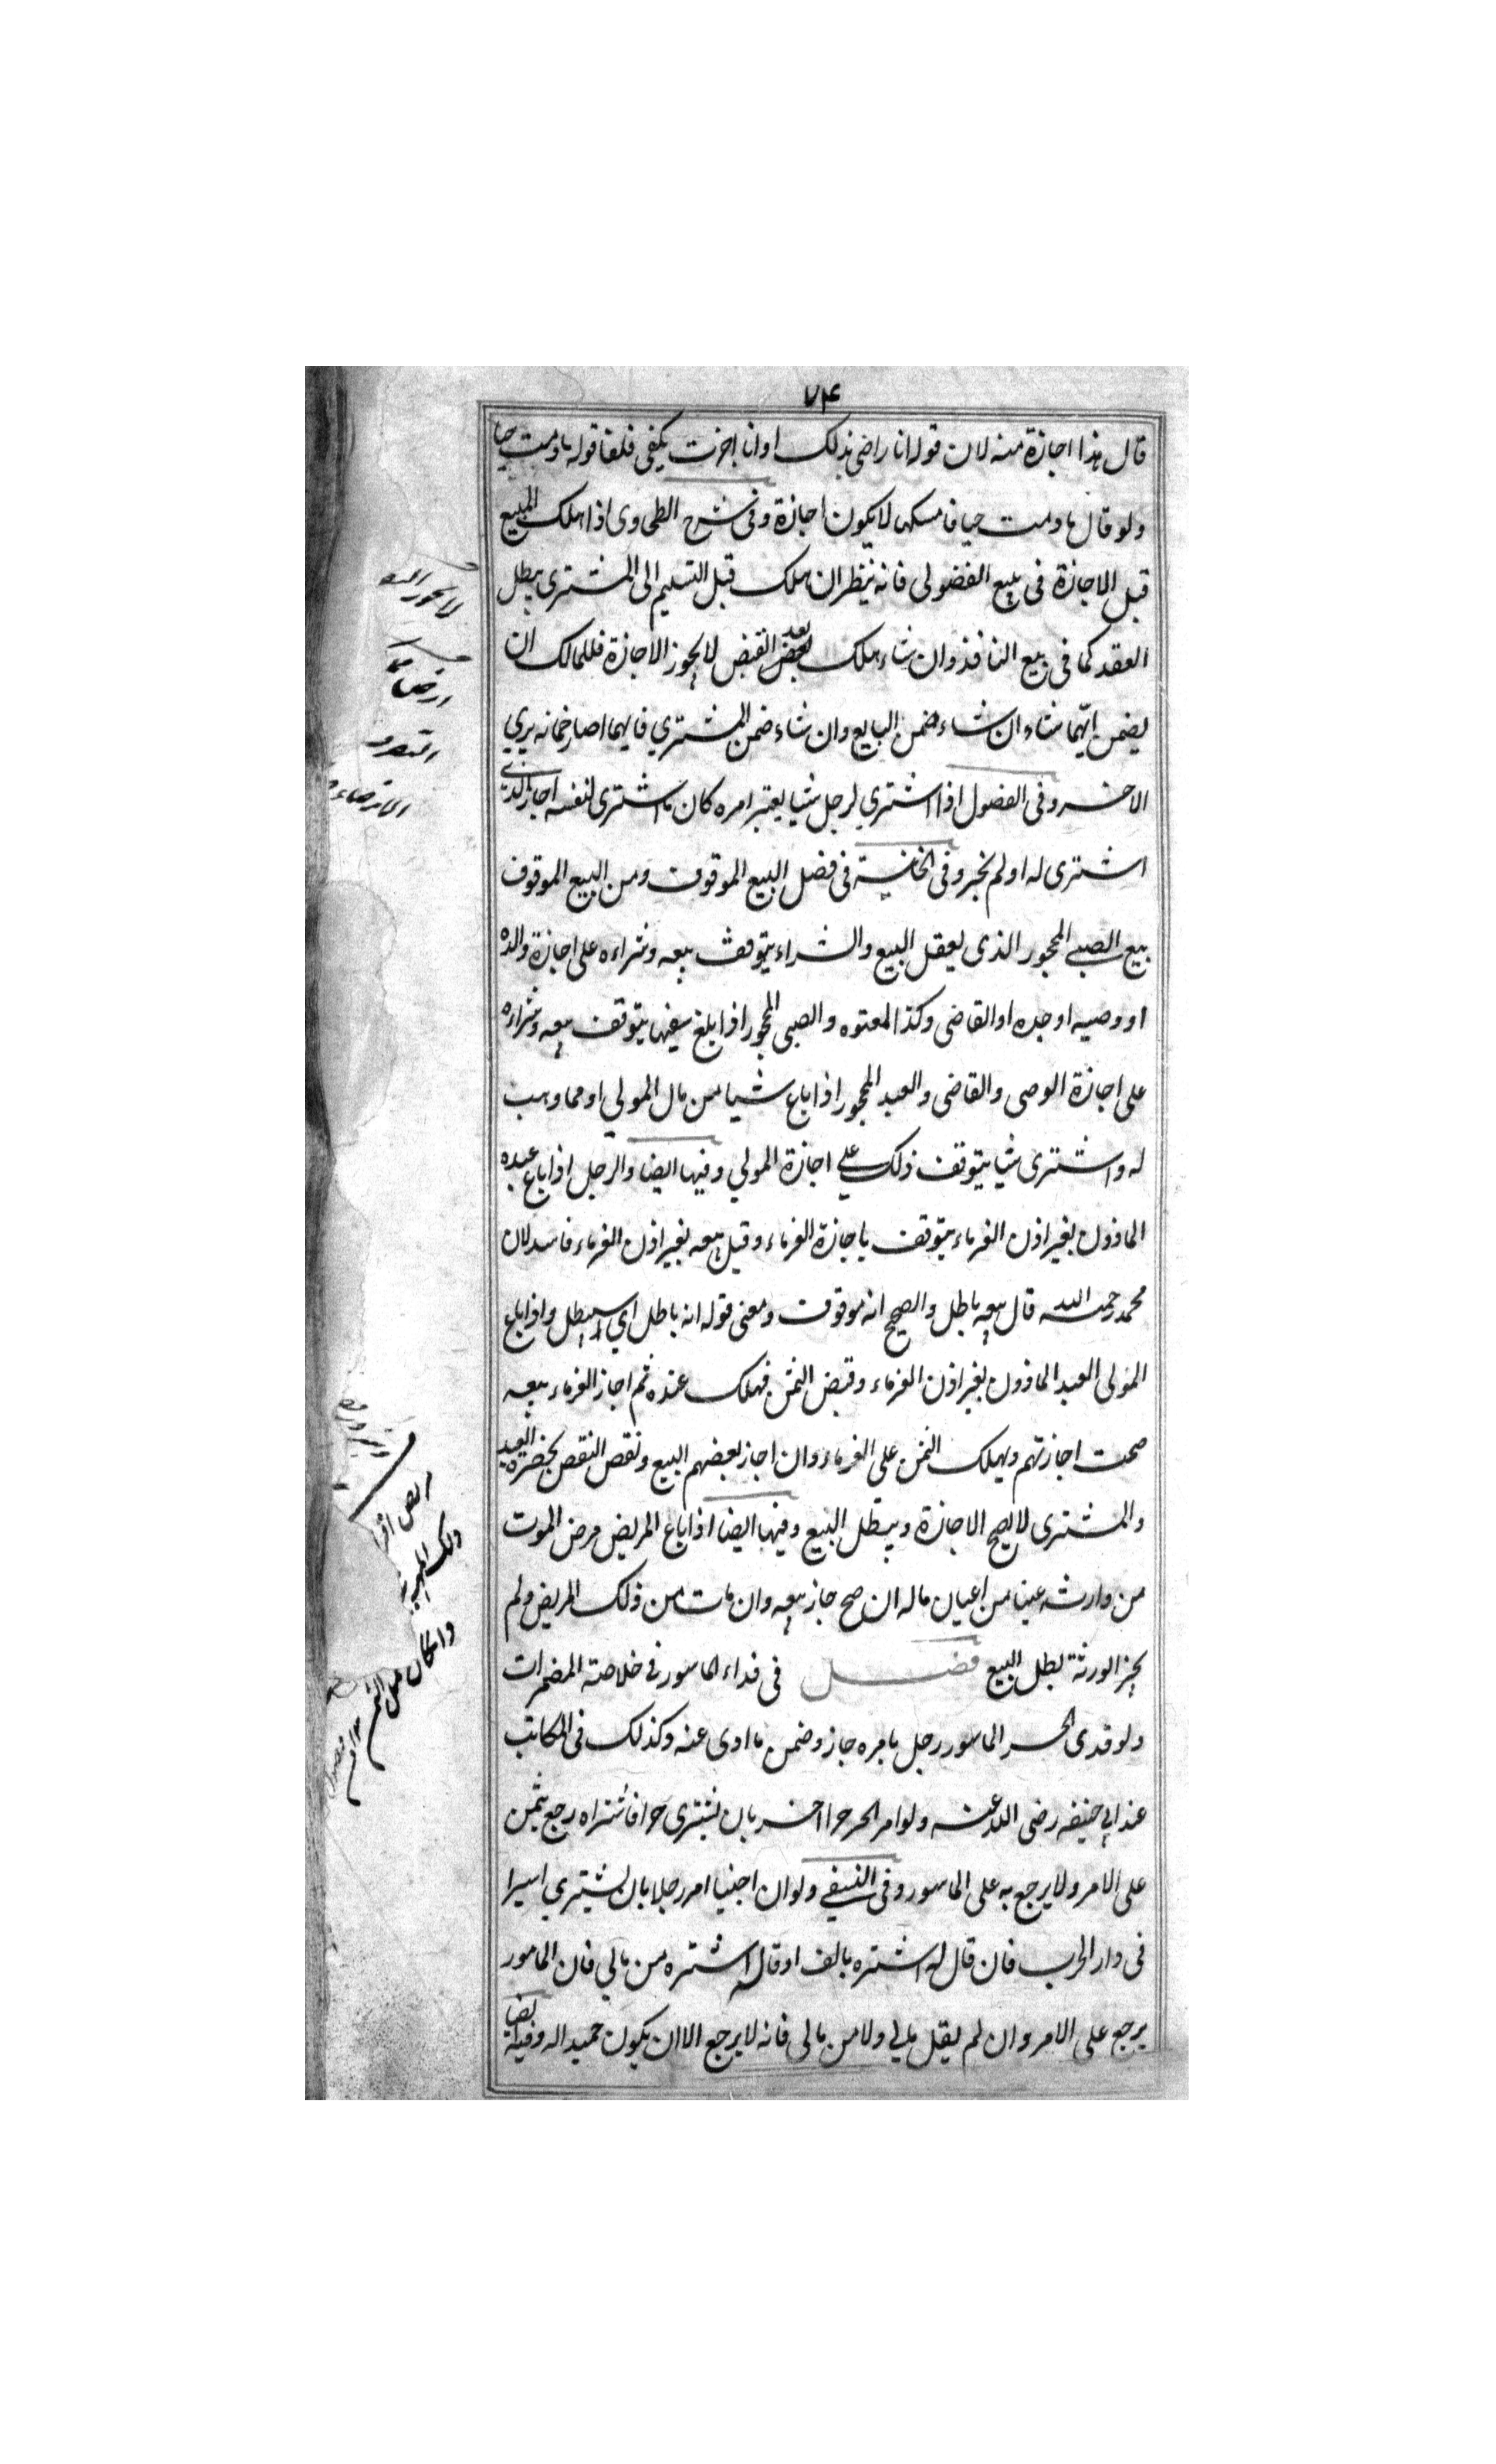 ٧٤
قال هذا اجازة منه لان قوله انا راضى بذلك او انا اجزت يكفى فلغا قوله مادمت حيا
ولو قال مادمت حيا فامسكها لا يكون اجازة وفى شرح الطحاوى اذا هلك المبيع
قبل الاجازة فى بيع الفضولى فانه ينظر ان هلك قبل التسليم الى المشترى يبطل
العقد كما فى بيع النافذ وان شاء هلك بعد القبض لا يجوز الاجازة فللمالك ان
يضمن ايهما شاء ان شاء ضمن البايع وان شاء ضمن المشتري فايهما اصار ضمانه بري
الاخر وفى الفصول اذا اشتري لرجل شيا بغير امره كان ما اشترى لنفسه اجاز الذي
اشترى له او لم يجز وفى الخانية فى فصل البيع الموقوف ومن البيع الموقوف
بيع الصبي المحجور الذى يعقل البيع والشراء يتوقف بيعه وشراءه على اجازة والده
او وصيه او جده او القاضى وكذا المعتوه والصبى المحجور اذا بلغ سفيها يتوقف بيعه وشراءه
على اجازة الوصى والقاضى والعبد المحجور اذا باع شيا من مال المولي او مما وهب
له واشترى شيا يتوقف ذلك علي اجازة المولي وفيها ايضا والرجل اذا باع عبده
الماذون بغير اذن الغرماء يتوقف باجازة الغرماء وقيل بيعه بغير اذن الغرماء فاسد لان
محمد رحمة الله قال بيعه باطل والصحيح انه موقوف ومعنى قوله انه باطل اي سيبطل واذا باع
المولى العبد الماذون بغير اذن الغرماء وقبض الثمن فهلك عنده ثم اجاز الغرماء بيعه
صحت اجازتهم ويهلك الثمن على الغرماء وان اجاز بعضهم البيع ونقص النقص بحضرة العبد
والمشترى لا يصح الاجازة ويبطل البيع وفيها ايضا اذا باع المريض مرض الموت
من وارثه عينا من اعيان ماله ان صح جاز بيعه وان مات من ذلك المريض ولم
يجز الورثة بطل البيع فصل فى فداء الماسور فى خلاصة المضمرات
ولو فدى الحر الماسور رجل بامره جاز وضمن ما ادى عنه وكذلك فى المكاتب
عند ابي حنيفه رضى الله عنه ولو امر الحر حرا اخر بان يشترى حرا فاشتراه رجع بثمن
على الامر ولا يرجع به على الماسور وفى النسفي ولو ان اجنبيا امر رجلا بان يشتري اسيرا
فى دار الحرب فان قال له اشتره بالف او قال اشتره من مالي فان المامور
يرجع على الامر وان لم يقل مالي ولا من مالى فانه لا يرجع الا ان يكون حميدا له وفيه ايضا